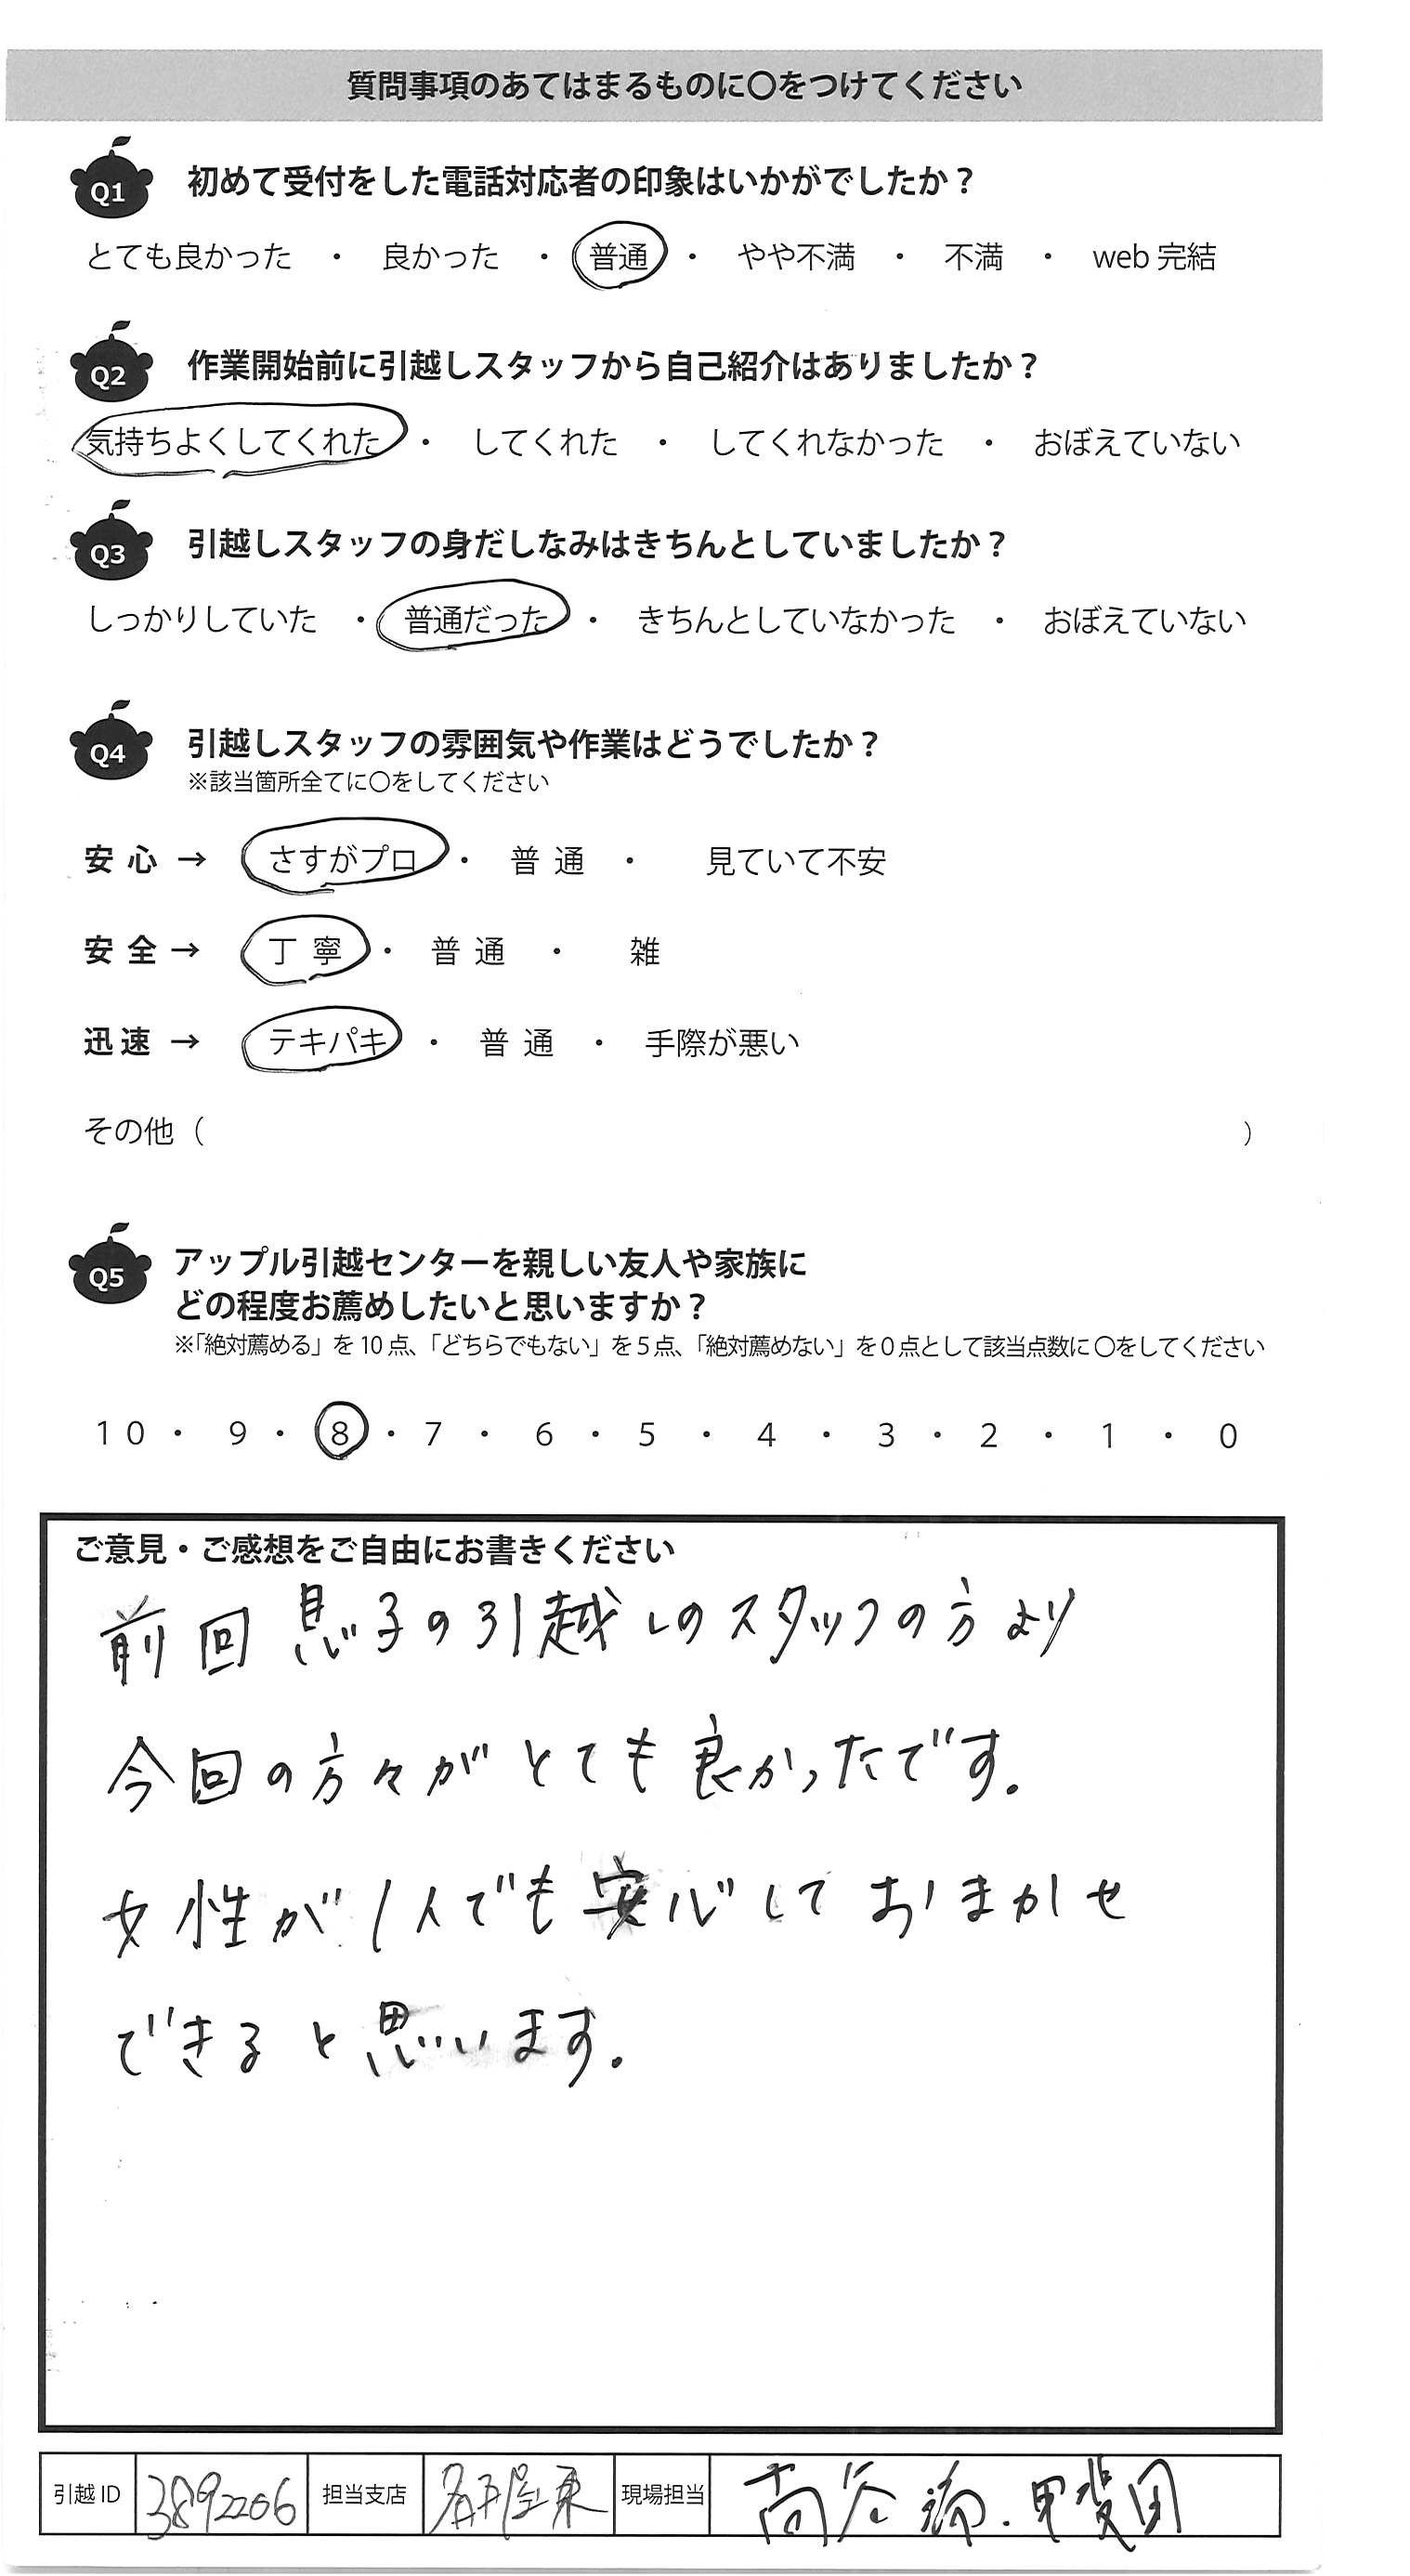 質問事項のあてはまるものに〇をつけてください
Q1 初めて受付をした電話対応者の印象はいかがでしたか？
とても良かった ・ 良かった ・ 普通 ・ やや不満 ・ 不満 ・ web 完結
Q2 作業開始前に引越しスタッフから自己紹介はありましたか？
気持ちよくしてくれた ・ してくれた ・ してくれなかった ・ おぼえていない
Q3 引越しスタッフの身だしなみはきちんとしていましたか？
しっかりしていた ・ 普通だった ・ きちんとしていなかった ・ おぼえていない
Q4 引越しスタッフの雰囲気や作業はどうでしたか？
※該当箇所全てに〇をしてください
安心 → さすがプロ ・ 普通 ・ 見ていて不安
安全 → 丁寧 ・ 普通 ・ 雑
迅速 → テキパキ ・ 普通 ・ 手際が悪い
その他（ ）
Q5 アップル引越センターを親しい友人や家族に
どの程度お薦めしたいと思いますか？
※「絶対薦める」を10点、「どちらでもない」を5点、「絶対薦めない」を0点として該当点数に〇をしてください
10 ・ 9 ・ 8 ・ 7 ・ 6 ・ 5 ・ 4 ・ 3 ・ 2 ・ 1 ・ 0
ご意見・ご感想をご自由にお書きください
前回息子の引越しのスタッフの方より
今回の方々がとても良かったです.
女性が1人でも安心しておまかせ
できると思います.
引越ID 3892206 担当支店 名古屋東 現場担当 高谷 . 甲斐田